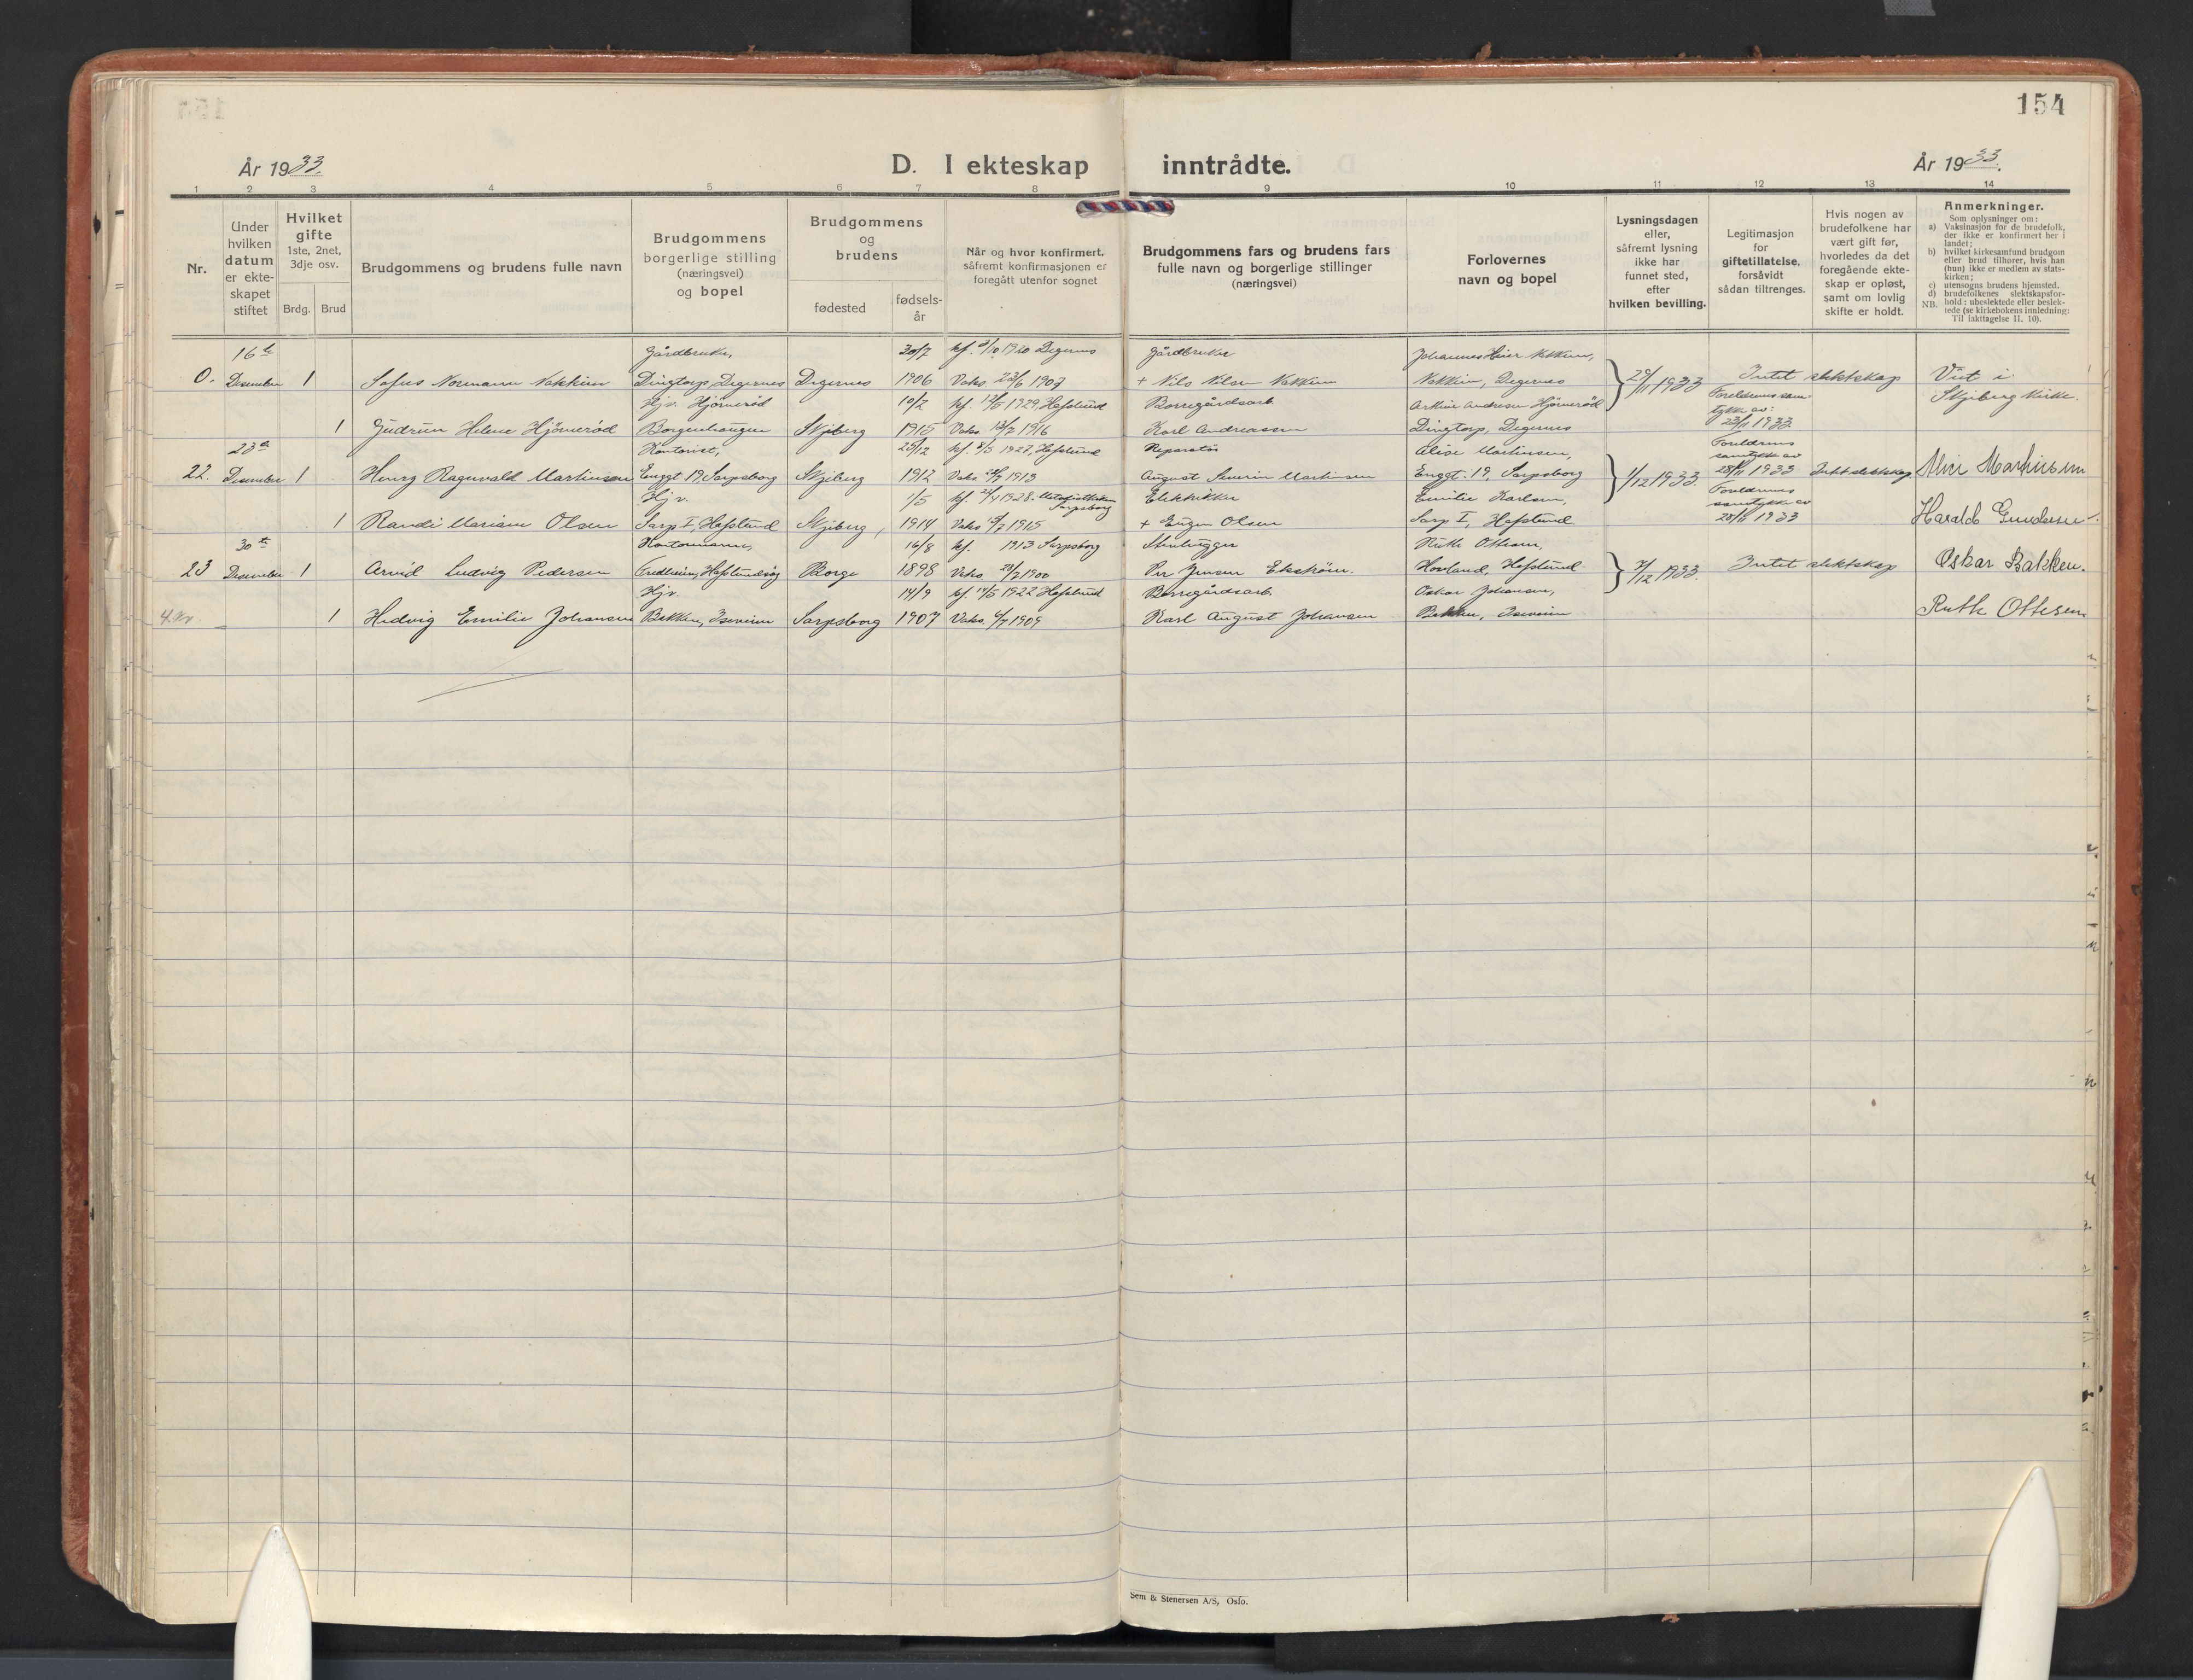 154
År 1933.
D. I ekteskap inntrådte.
År 1933.
1 2 3 4 5 6 7 8 9 10 11 12 13 14
Nr.
Under hvilken datum er ekte-skapet stiftet
Hvilket gifte 1ste, 2net, 3dje osv.
Brdg. Brud
Brudgommens og brudens fulle navn
Brudgommens borgerlige stilling (næringsvei) og bopel
Brudgommens og brudens
fødested
fødsels-år
Når og hvor konfirmert, såfremt konfirmasjonen er foregått utenfor sognet
Brudgommens fars og brudens fars fulle navn og borgerlige stillinger (næringsvei)
Forlovernes navn og bopel
Lysningsdagen eller, såfremt lysning ikke har funnet sted, efter hvilken bevilling.
Legitimasjon for giftetillatelse, forsåvidt sådan tiltrenges.
Hvis nogen av brudefolkene har vært gift før, hvorledes da det foregående ekte-skap er opløst, samt om lovlig skifte er holdt.
Anmerkninger.
Som oplysninger om:
a) Vaksinasjon for de brudefolk, der ikke er konfirmert her i landet;
b) hvilket kirkesamfund brudgom eller brud tilhører, hvis han (hun) ikke er medlem av stats-kirken;
c) utensogns brudens hjemsted.
d) brudefolkenes slektskapsfor-hold: ubeslektede eller beslek-tede (se kirkebokens innledning:
NB. Til iakttagelse II. 10).
16de Gårdbruker, 30/7 kf. 1920 Degernes Gårdbruker
0. Desember 1 Sofus Normann Nakkim Dingtorp, Degernes Degernes 1906 Vaks. 23/6 1907 + Nils Nilsen Nakkim Nakkim, Degernes 29/11 1933 Intet slektskap Viet i
Hjv. Hjørnerød 10/2 kf. 1929, Hafslund Borregårdsarb. Foreldrenes sam- Skjeberg kirke.
tykke av:
1 Gudrun Helene Hjørnerød Borgenhaugen Skjeberg 1915 Vaks. 13/7 1916 Karl Andreassen Dingtorp, Degernes 23/11 1933
23de Kontorist, 25/12 kf. 1927, Hafslund Reparatør Alise Martinsen, Foreldrenes samtykke av
22. Desember 1 Henry Ragnvald Martinsen Enggt 19, Sarpsborg Skjeberg 1912 Vaks. 1913 August Severin Martinsen Enggt. 19, Sarpsborg 1/12 1933 28/11 1933 Intet slektskap
Hjv. 1/5 kf. 1928. Sarpsborg Elektriker Emilie Karlsen, Foreldrenes samtykke av
1 Randi Mariane Olsen Sarp I, Hafslund Skjeberg, 1914 Vaks. 1915 + Eugen Olsen Sarp I, Hafslund 28/11 1933 Harald Gundersen
30te Kontormann, 16/8 kf. 1913 Sarpsborg Stenhugger Ruth Ottesen,
23 Desember 1 Arvid Ludvig Pedersen Fredheim, Hafslundsøy Borge 1898 Vaks. 1900 Per Jensen Ekström. Hovland, Hafslund 7/12 1933. Intet slektskap Oskar Bakken.
Hjv. 14/9 kf. 1922 Hafslund Borregårdsarb. Oskar Johansen,
4. kv. 1 Hedvig Emilie Johansen Bakken, Iseveien Sarpsborg 1907 Vaks. 1909 Karl August Johansen Bakken, Iseveien Ruth Ottesen
Sem & Stenersen A/S, Oslo.